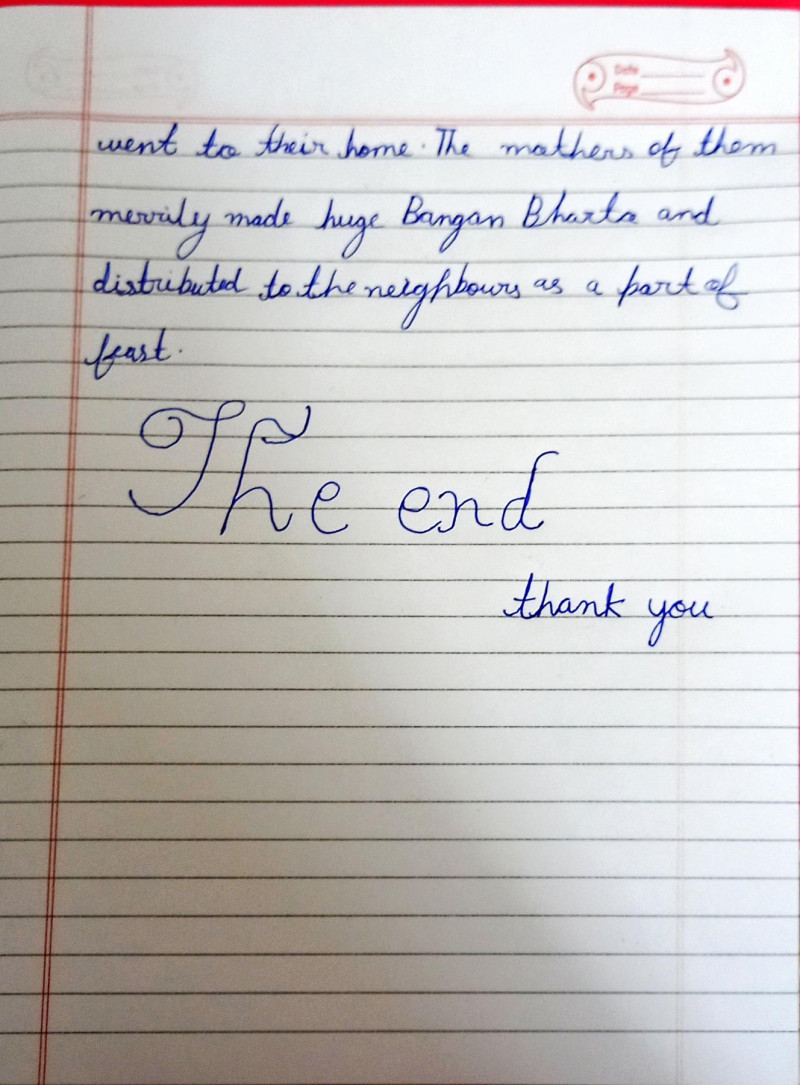 Date
Page
went to their home. The mothers of them
merrily made huge Bangan Bharta and
distributed to the neighbours as a part of
feast.
The end
thank you